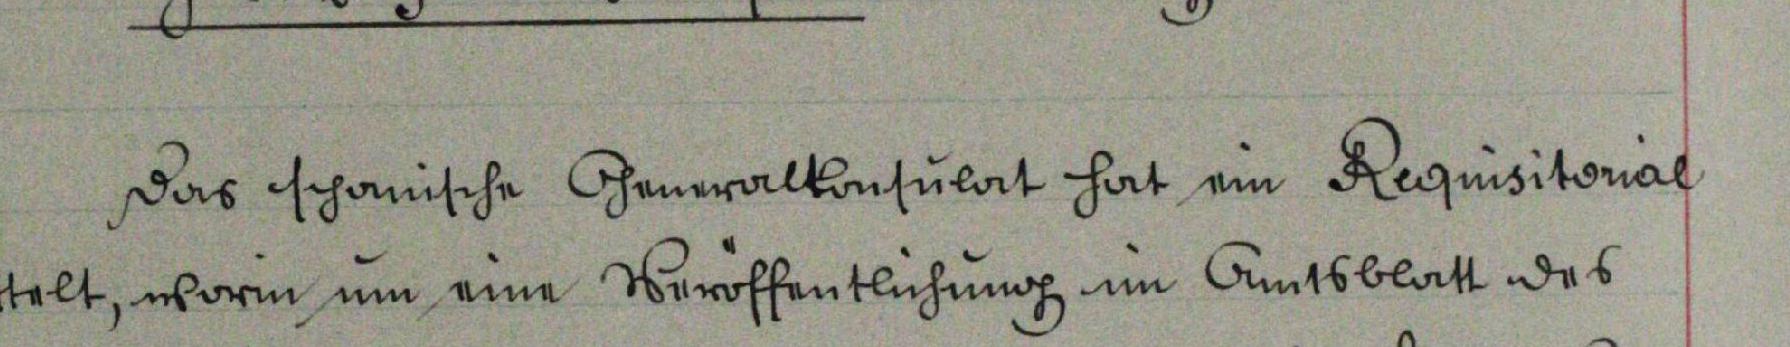 Das spanische Generalkonsulat hat ein Requisitorial
telt, worin um eine Veröffentlichung im Amtsblatt des